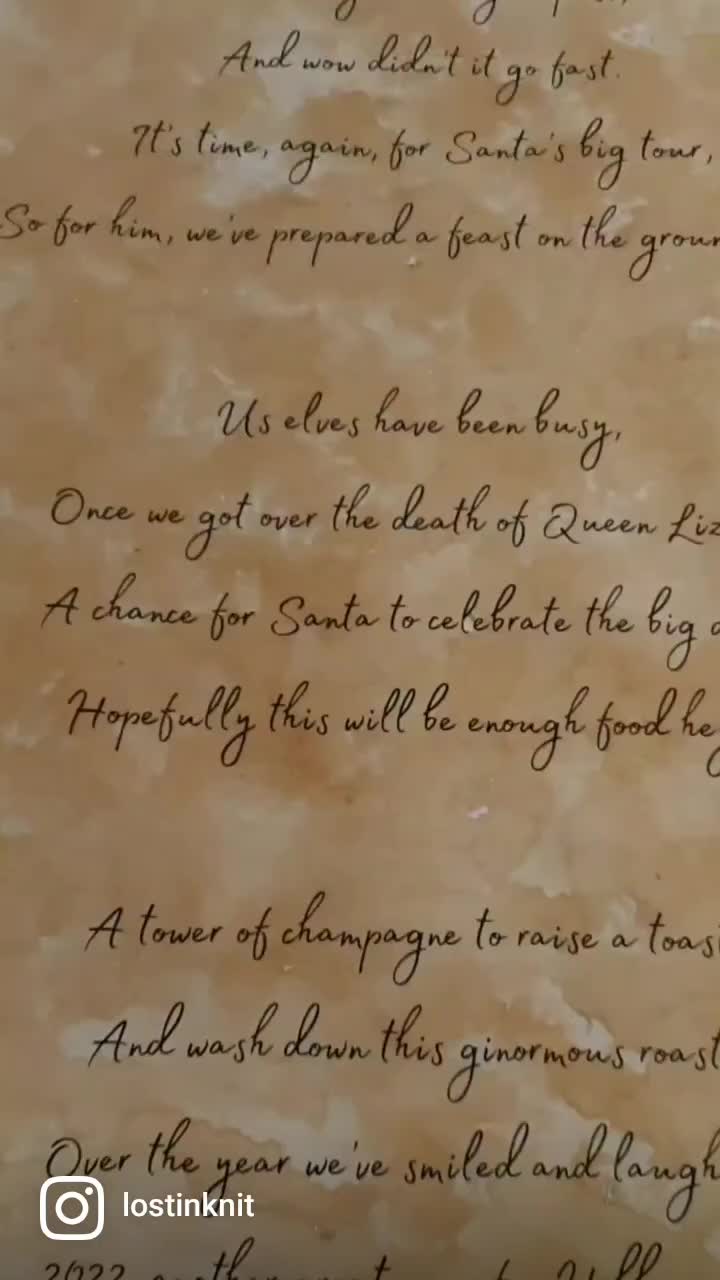 And wow didn't it go fast.
It's time, again, for Santa's big tour,
So for him, we've prepared a feast on the groun
Us elves have been busy,
Once we got over the death of Queen Liz
A chance for Santa to celebrate the big
Hopefully this will be enough food he
A tower of champagne to raise a toas
And wash down this ginormous roast
Over the year we've smiled and laugh
lostinknit
2022